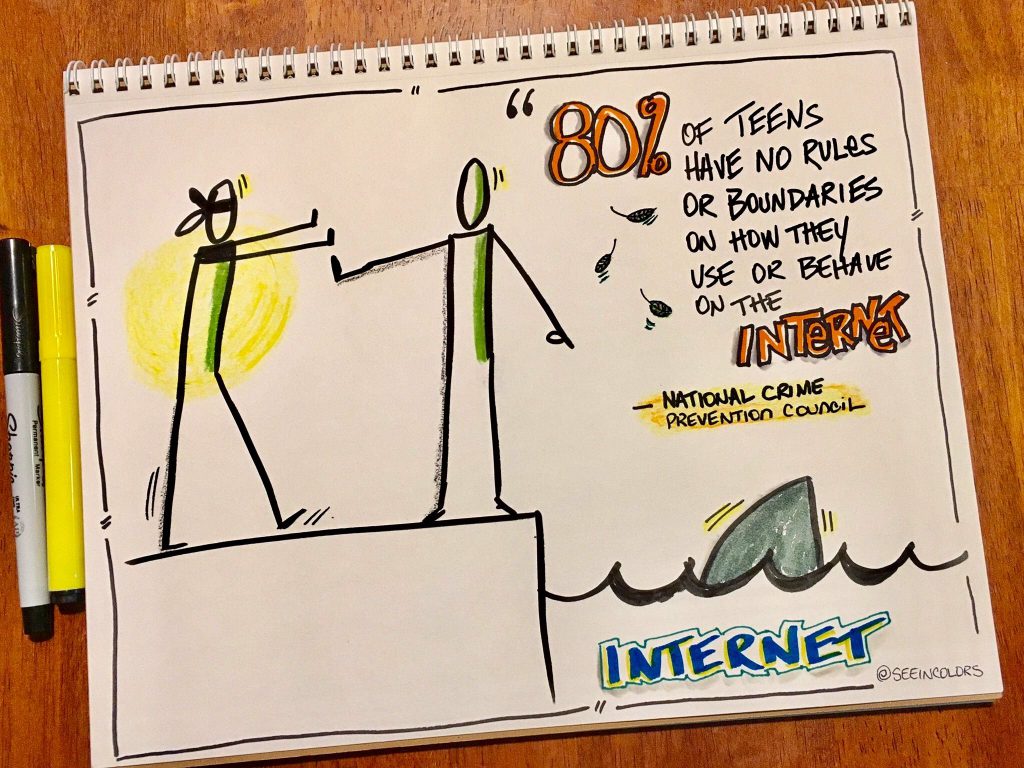 “ 80% OF TEENS
HAVE NO RULES
OR BOUNDARIES
ON HOW THEY
USE OR BEHAVE
ON THE
INTERNET
- NATIONAL CRIME
PREVENTION COUNCIL
INTERNET
@SEEINCOLORS
Sharpie
Permanent Marker